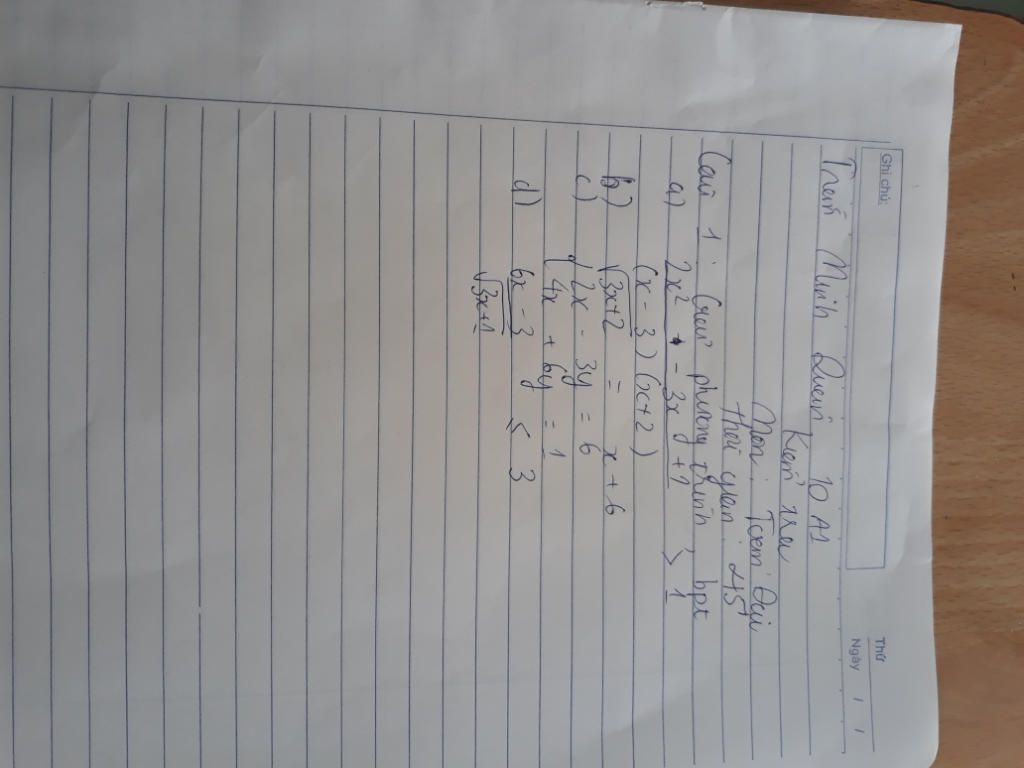 Ghi chú:
Thứ
Ngày / /
Trần Minh Quân 10 A1
Kiểm tra
Môn: Toán Đại
Thời gian 45'
Câu 1: Giải phương trình, bpt
a) \frac{2x² - 3x + 1}{(x - 3)(x + 2)} > 1
b) √(3x+2) = x + 6
c) { 2x - 3y = 6
{ 4x + 6y = 1
d) \frac{6x - 3}{√(3x+1)} ≤ 3